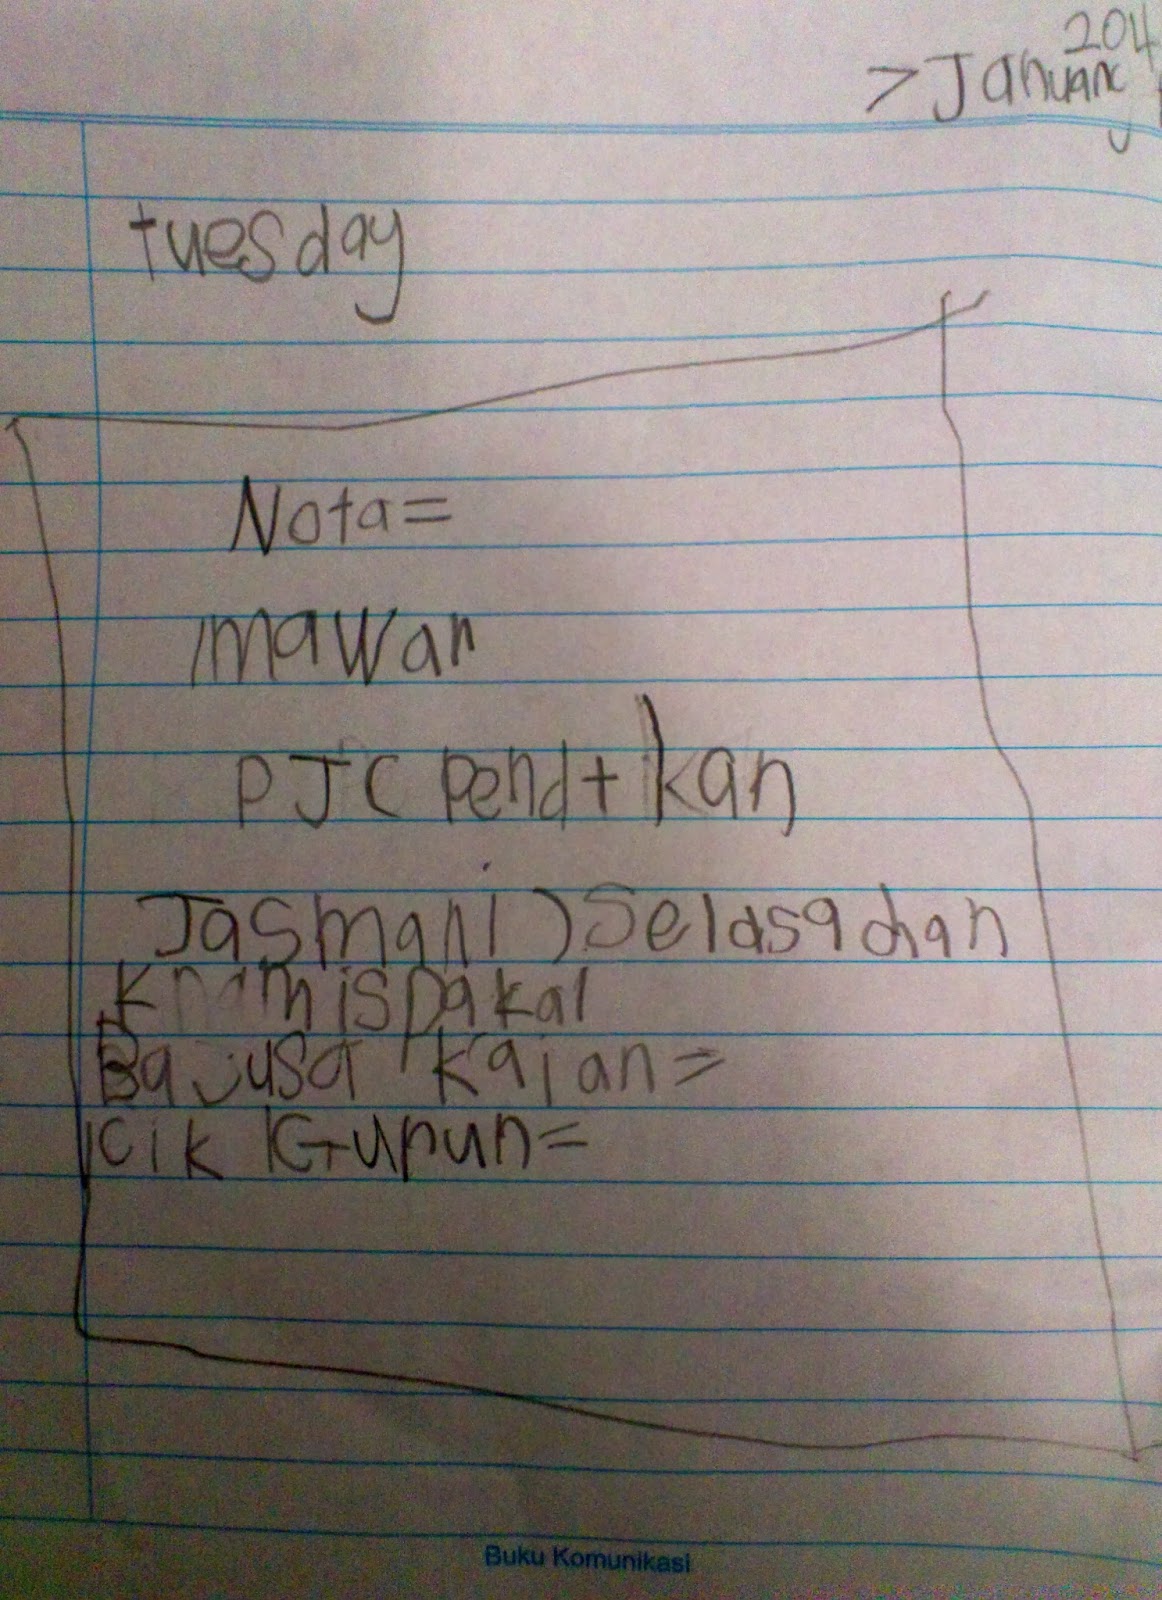 204
>January
tuesday
Nota=
mawar
PJC pend+kan
Jasmani) Selasa dan
Knamis pakai
Bajusa kaian=
cik Gunun=
Buku Komunikasi